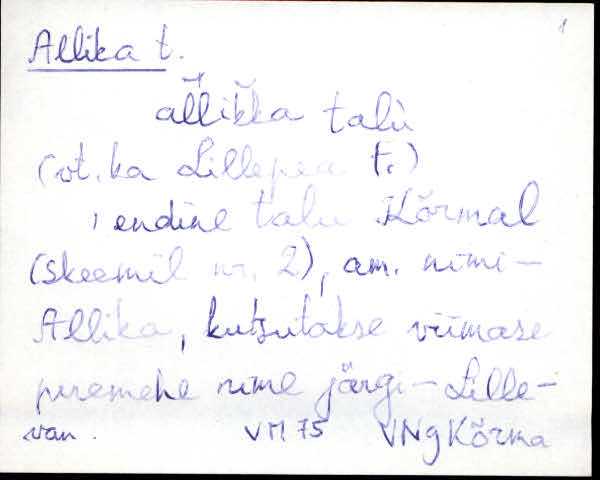 1
Allika t.
allikka talu
(vt. ka Lillepea t.)
, endine talu Kõrmal
(skeemil nr. 2), am. nimi –
Allika, kutsutakse viimase
peremehe nime järgi – Lille-
van. VM 75 VNg Kõrma